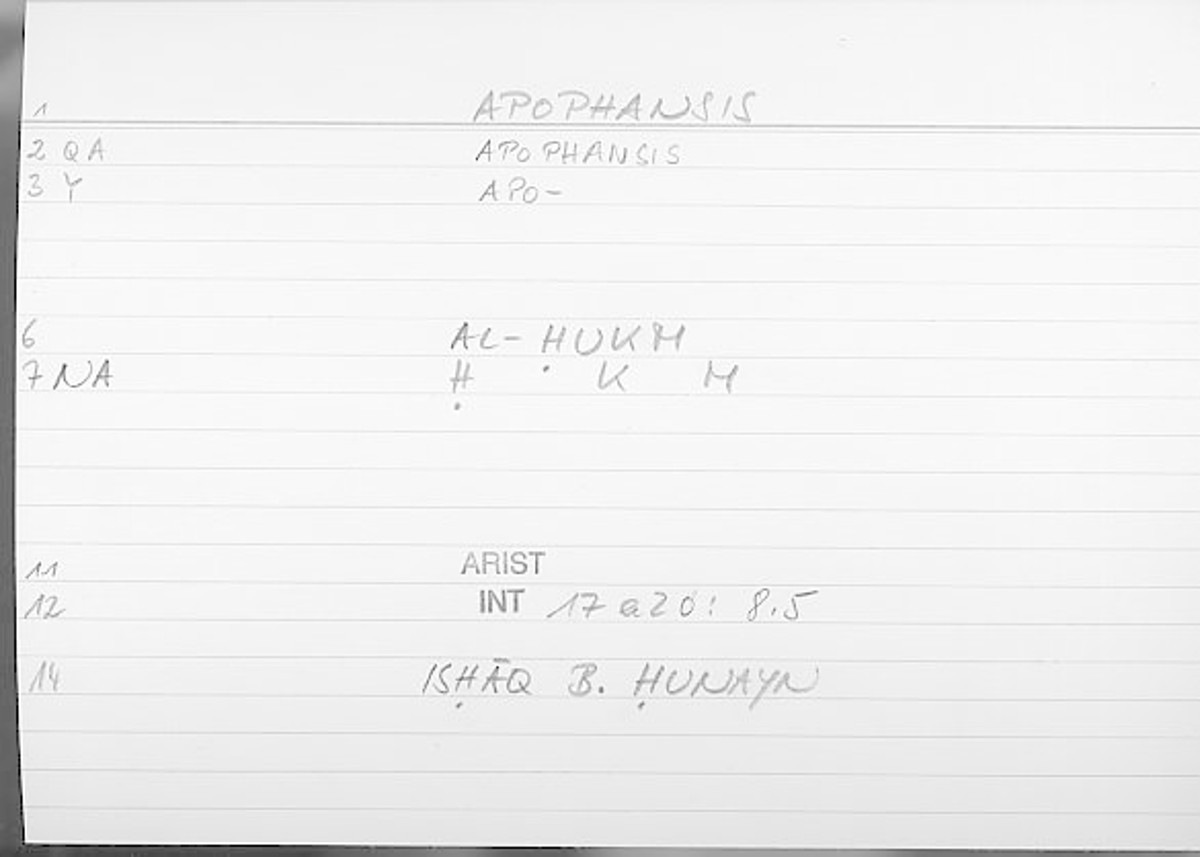 1 APOPHANSIS
2 QA APOPHANSIS
3 Y APO-
6 AL-ḤUKM
7 NA Ḥ K M
11 ARIST
12 INT 17a20: 8.5
14 ISḤĀQ B. ḤUNAYN